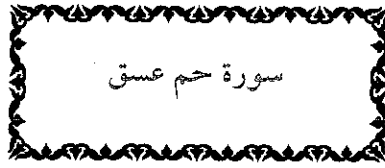 سورة حم عسق